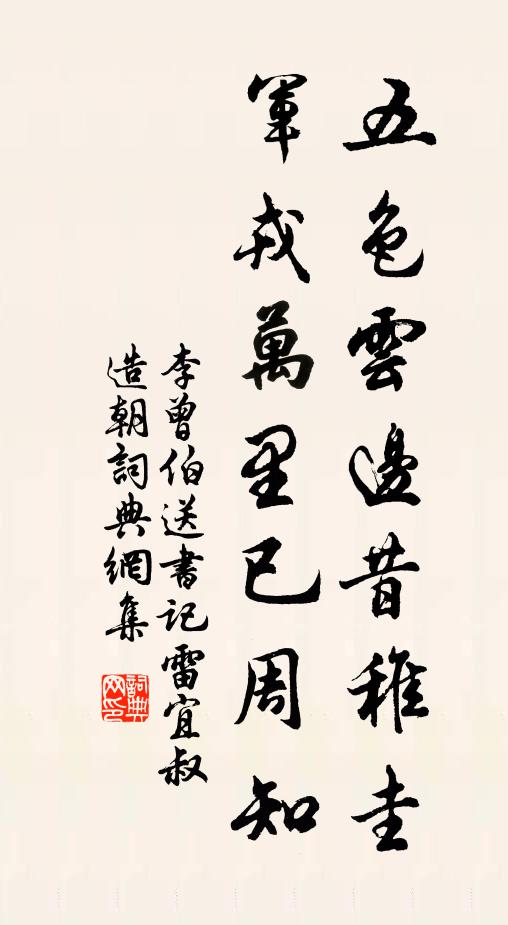 五色雲邊昔稚圭
軍戎萬里已周知
李曾伯送書記雷宜叔
造朝詞典網集
詞典
网印